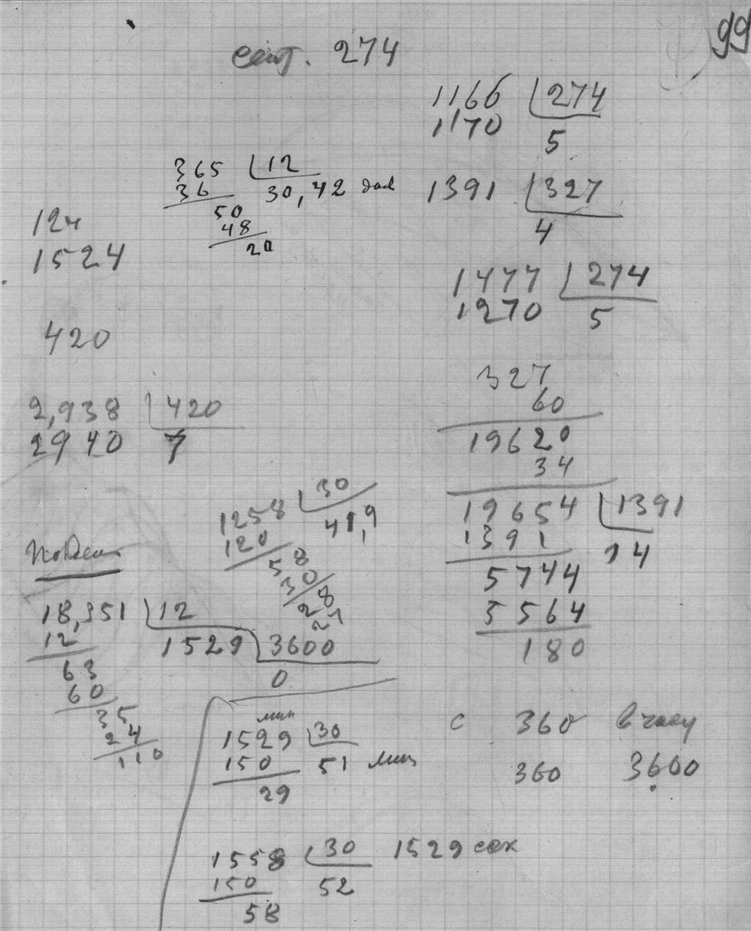 99
сент. 274
1166 274
1170 5
365 12
36 30,42
50
48
20
1391 327
4
124
1524
1477 274
1270 5
420
327
60
19620
34
2,938 420
2940 7
19654 1391
1391 14
5744
5564
180
1258 30
120 41,9
58
30
18,351 12
12 1529 3600
63 0
60
35
24
110
мин
1529 30
150 51 мин
29
с 360 в часу
360 3600
1558 30 1529 сек
150 52
58